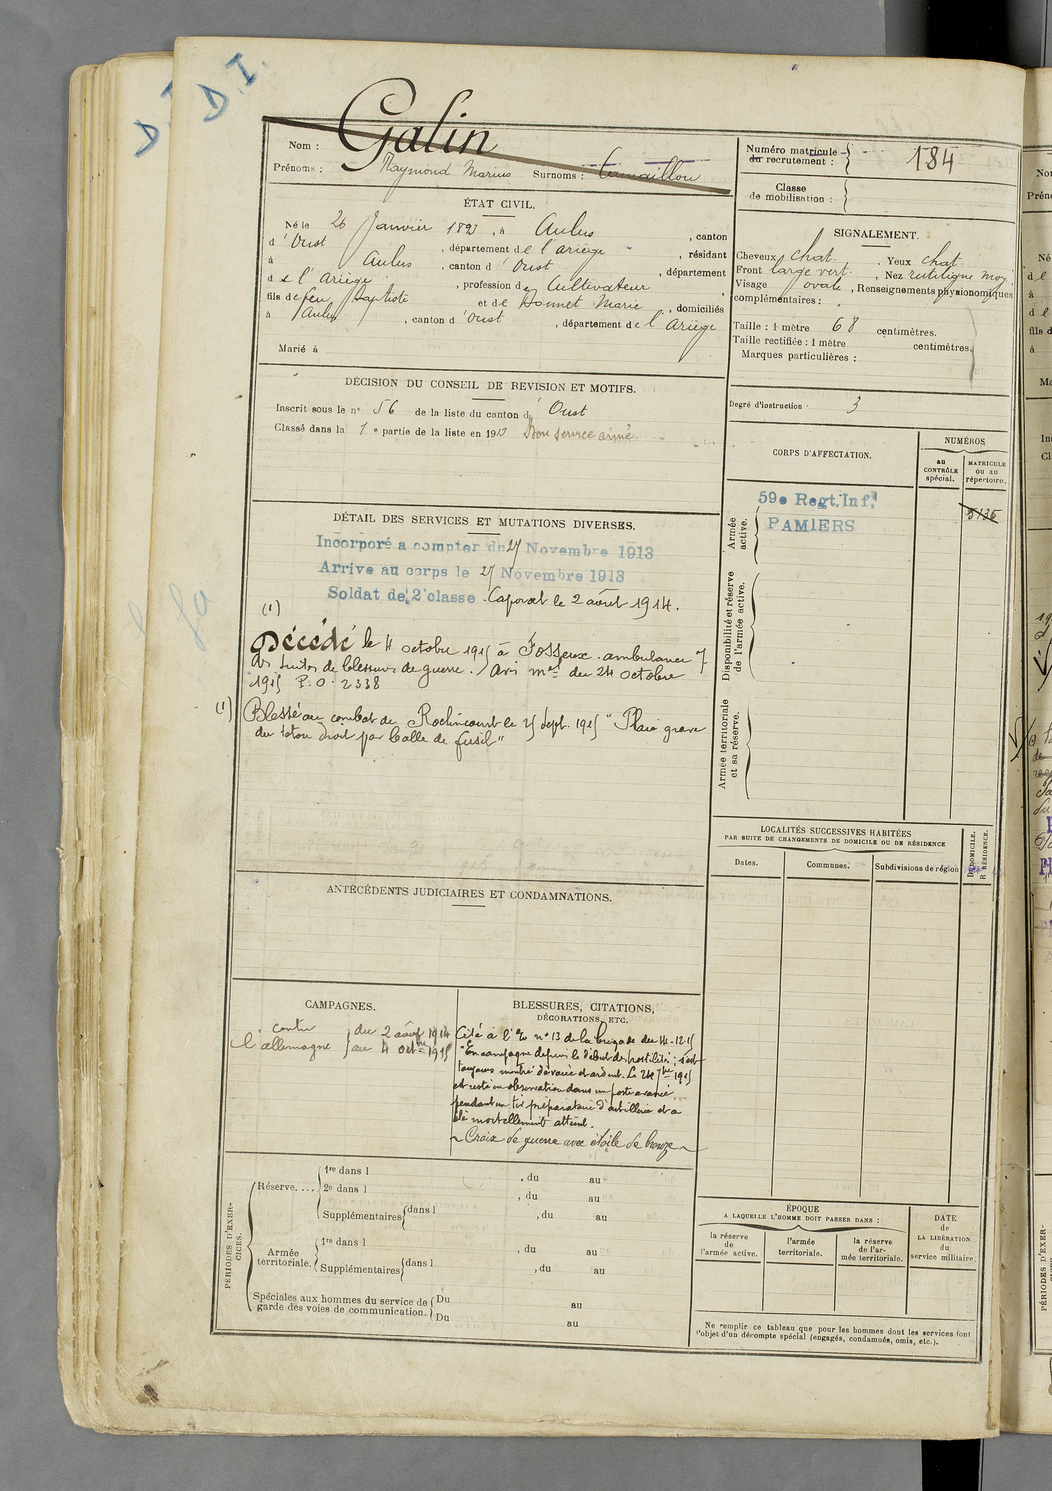 D.I.
D.I.
Galin
Nom :
Prénoms : Raymond Marius Surnoms : Camaillou
Numéro matricule du recrutement : 184
Classe de mobilisation :
ÉTAT CIVIL.
Né le 26 Janvier 1893, à Aulus, canton
d'Oust, département de l'Ariège, résidant
à Aulus, canton d'Oust, département
de l'Ariège, profession de Cultivateur,
fils de feu Baptiste et de Bonnet Marie, domiciliés
à Aulus, canton d'Oust, département de l'Ariège
Marié à
SIGNALEMENT.
Cheveux chat. Yeux chat.
Front large vert. Nez rectiligne moy.
Visage ovale, Renseignements physionomiques
complémentaires :
Taille : 1 mètre 68 centimètres.
Taille rectifiée : 1 mètre centimètres.
Marques particulières :
Degré d'instruction : 3
DÉCISION DU CONSEIL DE REVISION ET MOTIFS.
Inscrit sous le n° 56 de la liste du canton d'Oust
Classé dans la 1e partie de la liste en 1913 Bon service armé
CORPS D'AFFECTATION.
NUMÉROS
AU CONTRÔLE spécial.
MATRICULE OU AU répertoire.
Armée active.
59e Regt. Inf.
PAMIERS
5136
Disponibilité et réserve de l'armée active.
Armée territoriale et sa réserve.
DÉTAIL DES SERVICES ET MUTATIONS DIVERSES.
Incorporé a compter du 27 Novembre 1913
Arrivé au corps le 27 Novembre 1913
Soldat de 2e classe. Caporal le 2 août 1914.
(1)
Décédé le 4 octobre 1915 à Fosseux. ambulance 7
des suites de blessures de guerre. Avis mel du 24 octobre
1915 P.O. 2338
(1) Blessé au combat de Roclincourt le 25 sept. 1915 "Plaie grave
du talon droit par balle de fusil"
LOCALITÉS SUCCESSIVES HABITÉES
PAR SUITE DE CHANGEMENTS DE DOMICILE OU DE RÉSIDENCE
Dates.
Communes.
Subdivisions de région
D. DOMICILE.
R. RÉSIDENCE.
ANTÉCÉDENTS JUDICIAIRES ET CONDAMNATIONS.
CAMPAGNES.
contre l'allemagne
du 2 août 1914
au 4 octbre 1915
BLESSURES, CITATIONS,
DÉCORATIONS, ETC.
Cité à l'O. n° 13 de la brigade du 14-12-15
"En campagne depuis le début des hostilités ; s'est
toujours montré dévoué et ardent. Le 24 7bre 1915
est resté en observation dans un poste avancé
pendant un tir préparatoire d'artillerie et a
été mortellement atteint.
Croix de guerre avec étoile de bronze
PÉRIODES D'EXERCICES.
Réserve....
1re dans l , du au
2e dans l , du au
Supplémentaires dans l , du au
Armée territoriale.
1re dans l , du au
Supplémentaires dans l , du au
Spéciales aux hommes du service de
garde des voies de communication.
Du au
Du au
ÉPOQUE
A LAQUELLE L'HOMME DOIT PASSER DANS :
la réserve de l'armée active.
l'armée territoriale.
la réserve de l'armée territoriale.
DATE
de
LA LIBÉRATION
du
service militaire.
Ne remplir ce tableau que pour les hommes dont les services font
l'objet d'un décompte spécial (engagés, condamnés, omis, etc.).